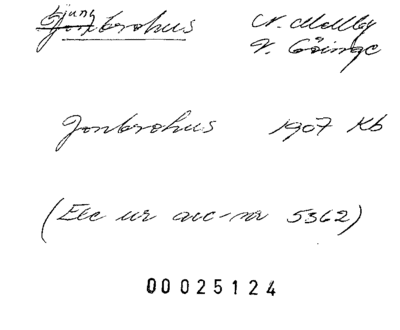 Ljungbrohus N. Mellby
V. Göinge
Jonbrohus 1907 Kb
(Exc ur acc-nr 5362)
00025124